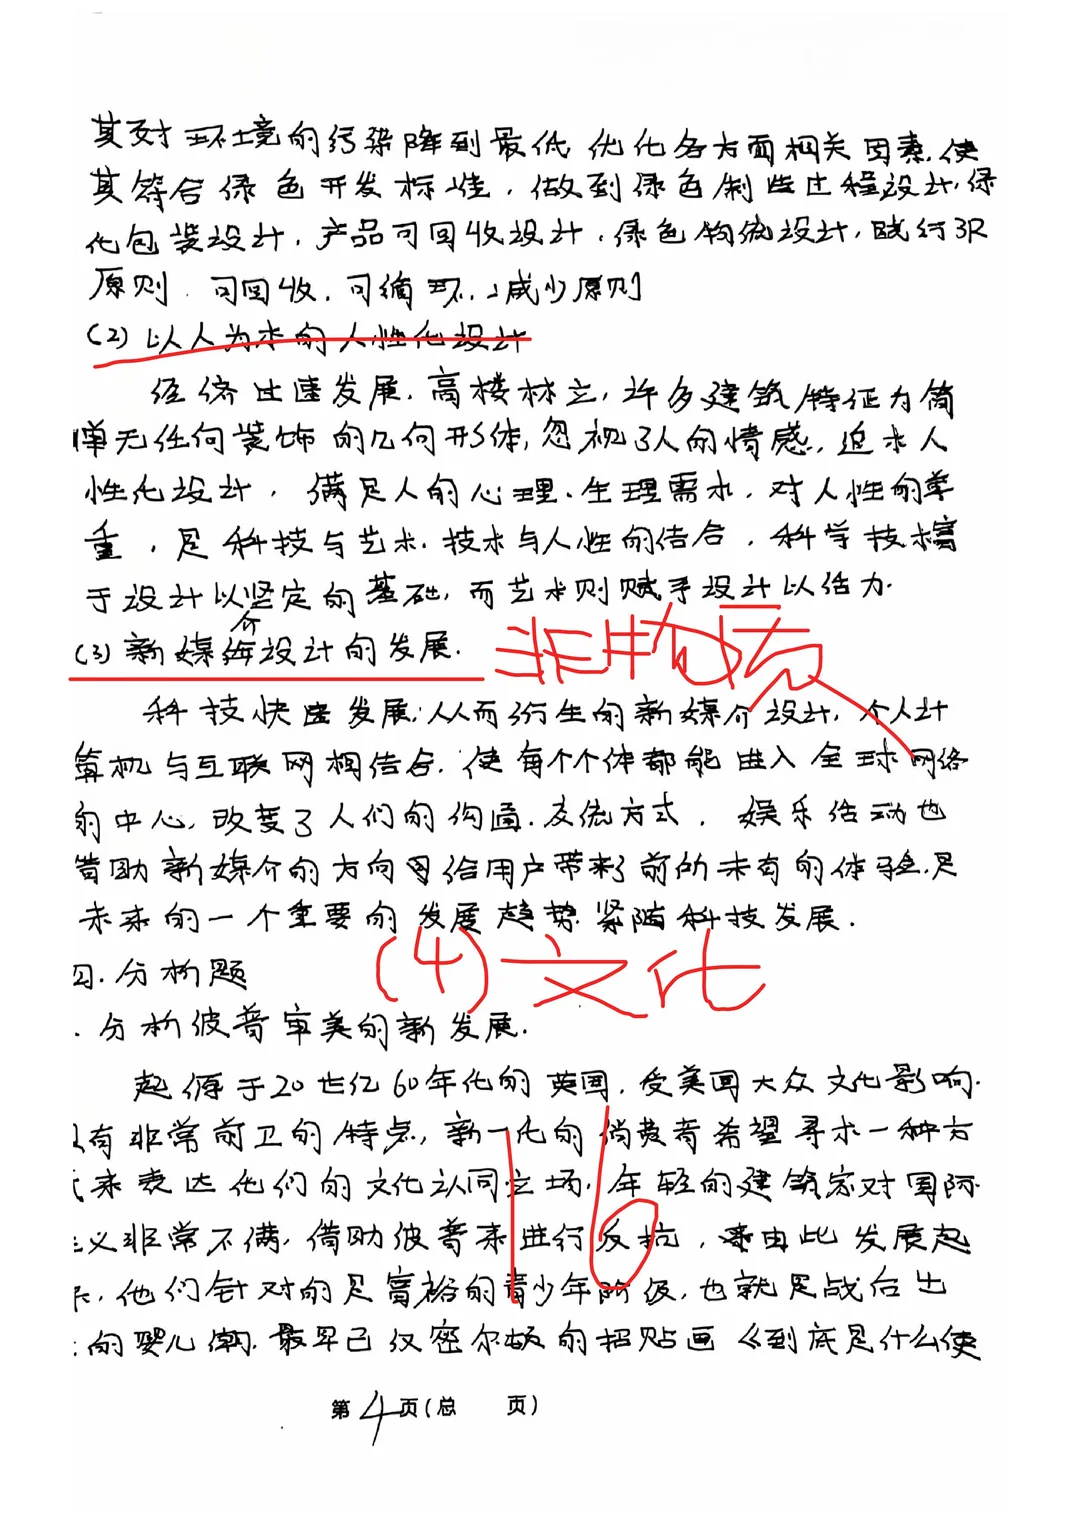 其对环境的污染降到最低 优化各方面相关因素.使
其符合绿色开发标准，做到绿色制造过程设计.绿
化包装设计，产品可回收设计.绿色物流设计，践行3R
原则.可回收.可循环.减少原则
(2)以人为本的人性化设计
经济快速发展.高楼林立，许多建筑特征为简
单无任何装饰的几何形体,忽视了人的情感.追求人
性化设计，满足人的心理、生理需求，对人性的尊
重，是科技与艺术.技术与人性的结合，科学技术富
于设计以坚定的基础，而艺术则赋予设计以活力.
介
(3)新媒体设计的发展. 非物质
科技快速发展,从而衍生的新媒介设计，个人计
算机与互联网相结合.使每个个体都能进入全球网络
的中心,改变了人们的沟通.交流方式，娱乐活动也
借助新媒介的方向 给用户带来了前所未有的体验.是
未来的一个重要的发展趋势.紧随科技发展.
(4)文化
四.分析题
.分析波普审美的新发展.
起源于20世纪60年代的英国,受美国大众文化影响.
具有非常前卫的特点，新一代的消费者希望寻求一种方
式来表达他们的文化认同立场,年轻的建筑家对国际
主义非常不满,借助波普来进行反抗，来由此发展起
来.他们针对的是富裕的青少年阶级,也就是战后出
的婴儿潮.最早已汉密尔顿的招贴画《到底是什么使
16
第4页(总 页)